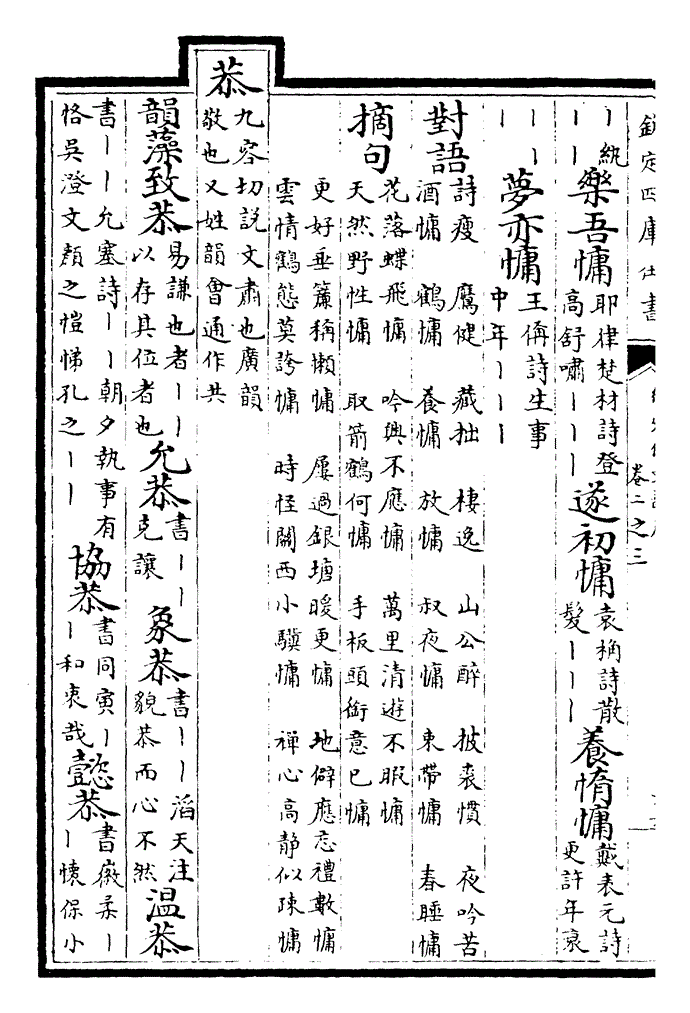 欽定四庫全書
卷二之三
ー紈
ーー
樂吾慵
耶律楚材詩登
高舒嘯ーーー
遂初慵
袁桷詩散
髮ーーー
養惰慵
戴表元詩
更許年衰
ーー
ー
夢亦慵
王儔詩生事
中年ーーー
對語
詩瘦 鷹健 藏拙 棲逸 山公醉 披裘慣 夜吟苦
酒慵 鶴慵 養慵 放慵 叔夜慵 束帶慵 春睡慵
摘句
花落蝶飛慵 吟興不應慵 萬里清遊不暇慵
天然野性慵 取箭鶴何慵 手板頭銜意已慵
更好垂簾稱懶慵 屢過銀塘暖更慵 地僻應忘禮數慵
雲情鶴態莫誇慵 時怪關西小驥慵 禪心高静似疎慵
恭
九容切說文肅也廣韻
敬也又姓韻會通作共
韻藻
致恭
易謙也者ーー
以存其位者也
允恭
書ーー
克讓
象恭
書ーー滔天注
貌恭而心不然
温恭
書ーー允塞詩ーー朝夕執事有
恪吳澄文顏之愷悌孔之ーー
協恭
書同寅ー
ー和衷哉
懿恭
書徽柔ー
ー懷保小